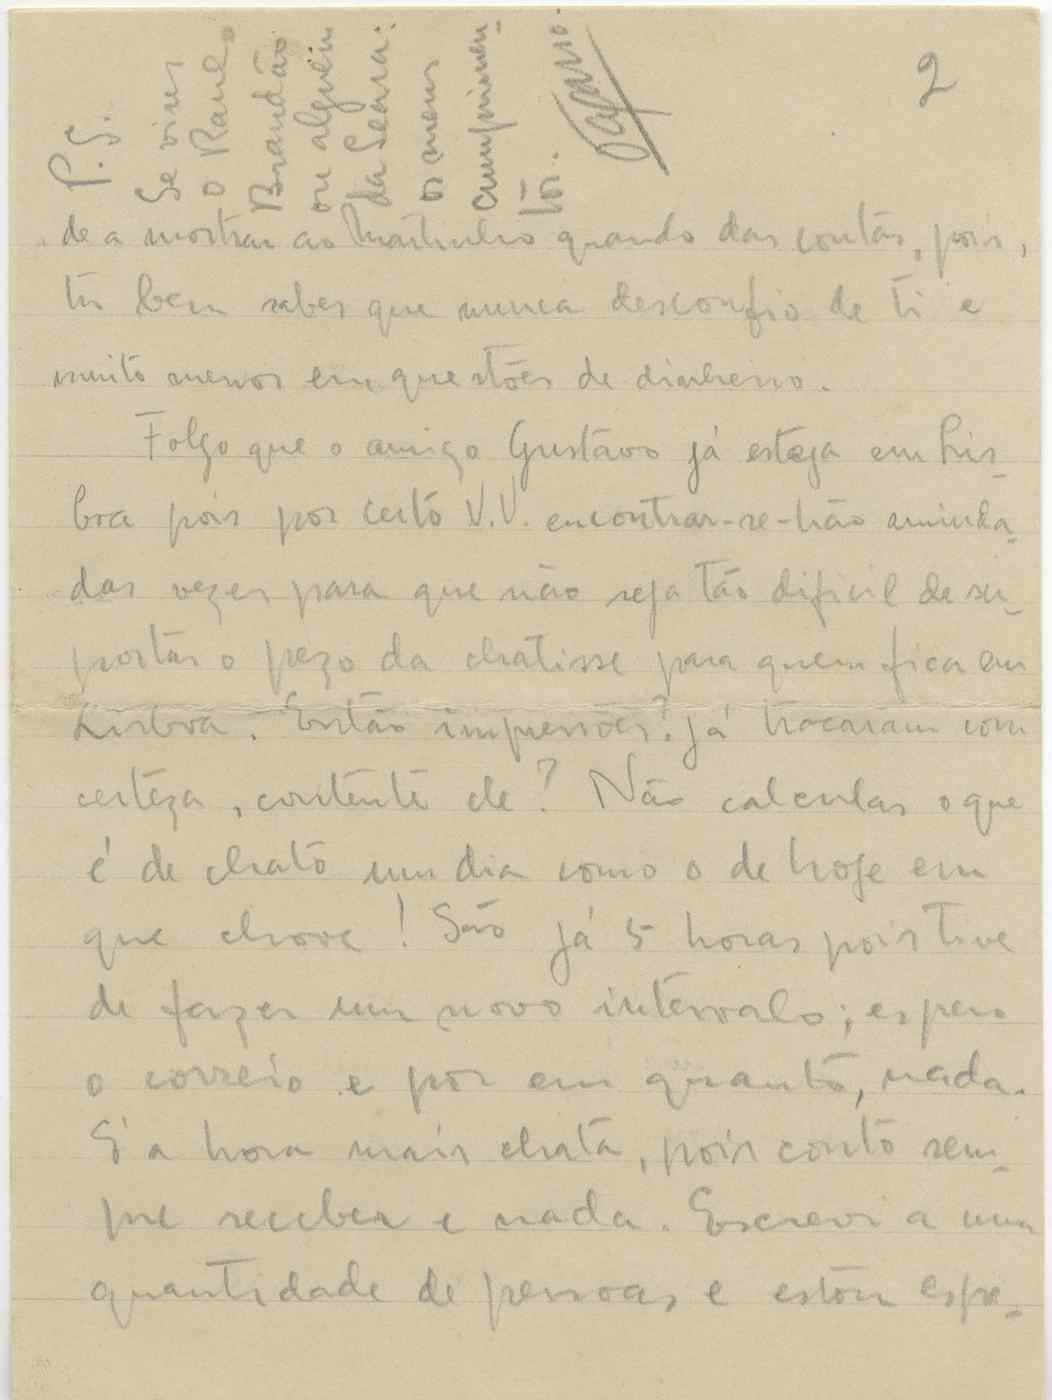 2
P.S.
Se vires
o Raul
Brandão
ou alguém
da Seara:
os meus
cumprimen-
tos.
de a mostrar ao Martinho quando das contas, pois,
tu bem sabes que nunca desconfio de ti e
muito menos em questões de dinheiro.
Folgo que o amigo Gustavo já esteja em Lis-
boa pois por certo V.V. encontrar-se-hão amiuda-
das vezes para que não seja tão dificil de su-
portar o pezo da chatisse para quem fica em
Lisboa. Então impressões? já trocaram com
certeza, contente ele? Não calculas o que
é de chato um dia como o de hoje em
que chove! São já 5 horas pois tive
de fazer um novo intervalo; espero
o correio e por em quanto, nada.
É a hora mais chata, pois conto sem-
pre receber e nada. Escrevi a uma
quantidade de pessoas e estou espe-